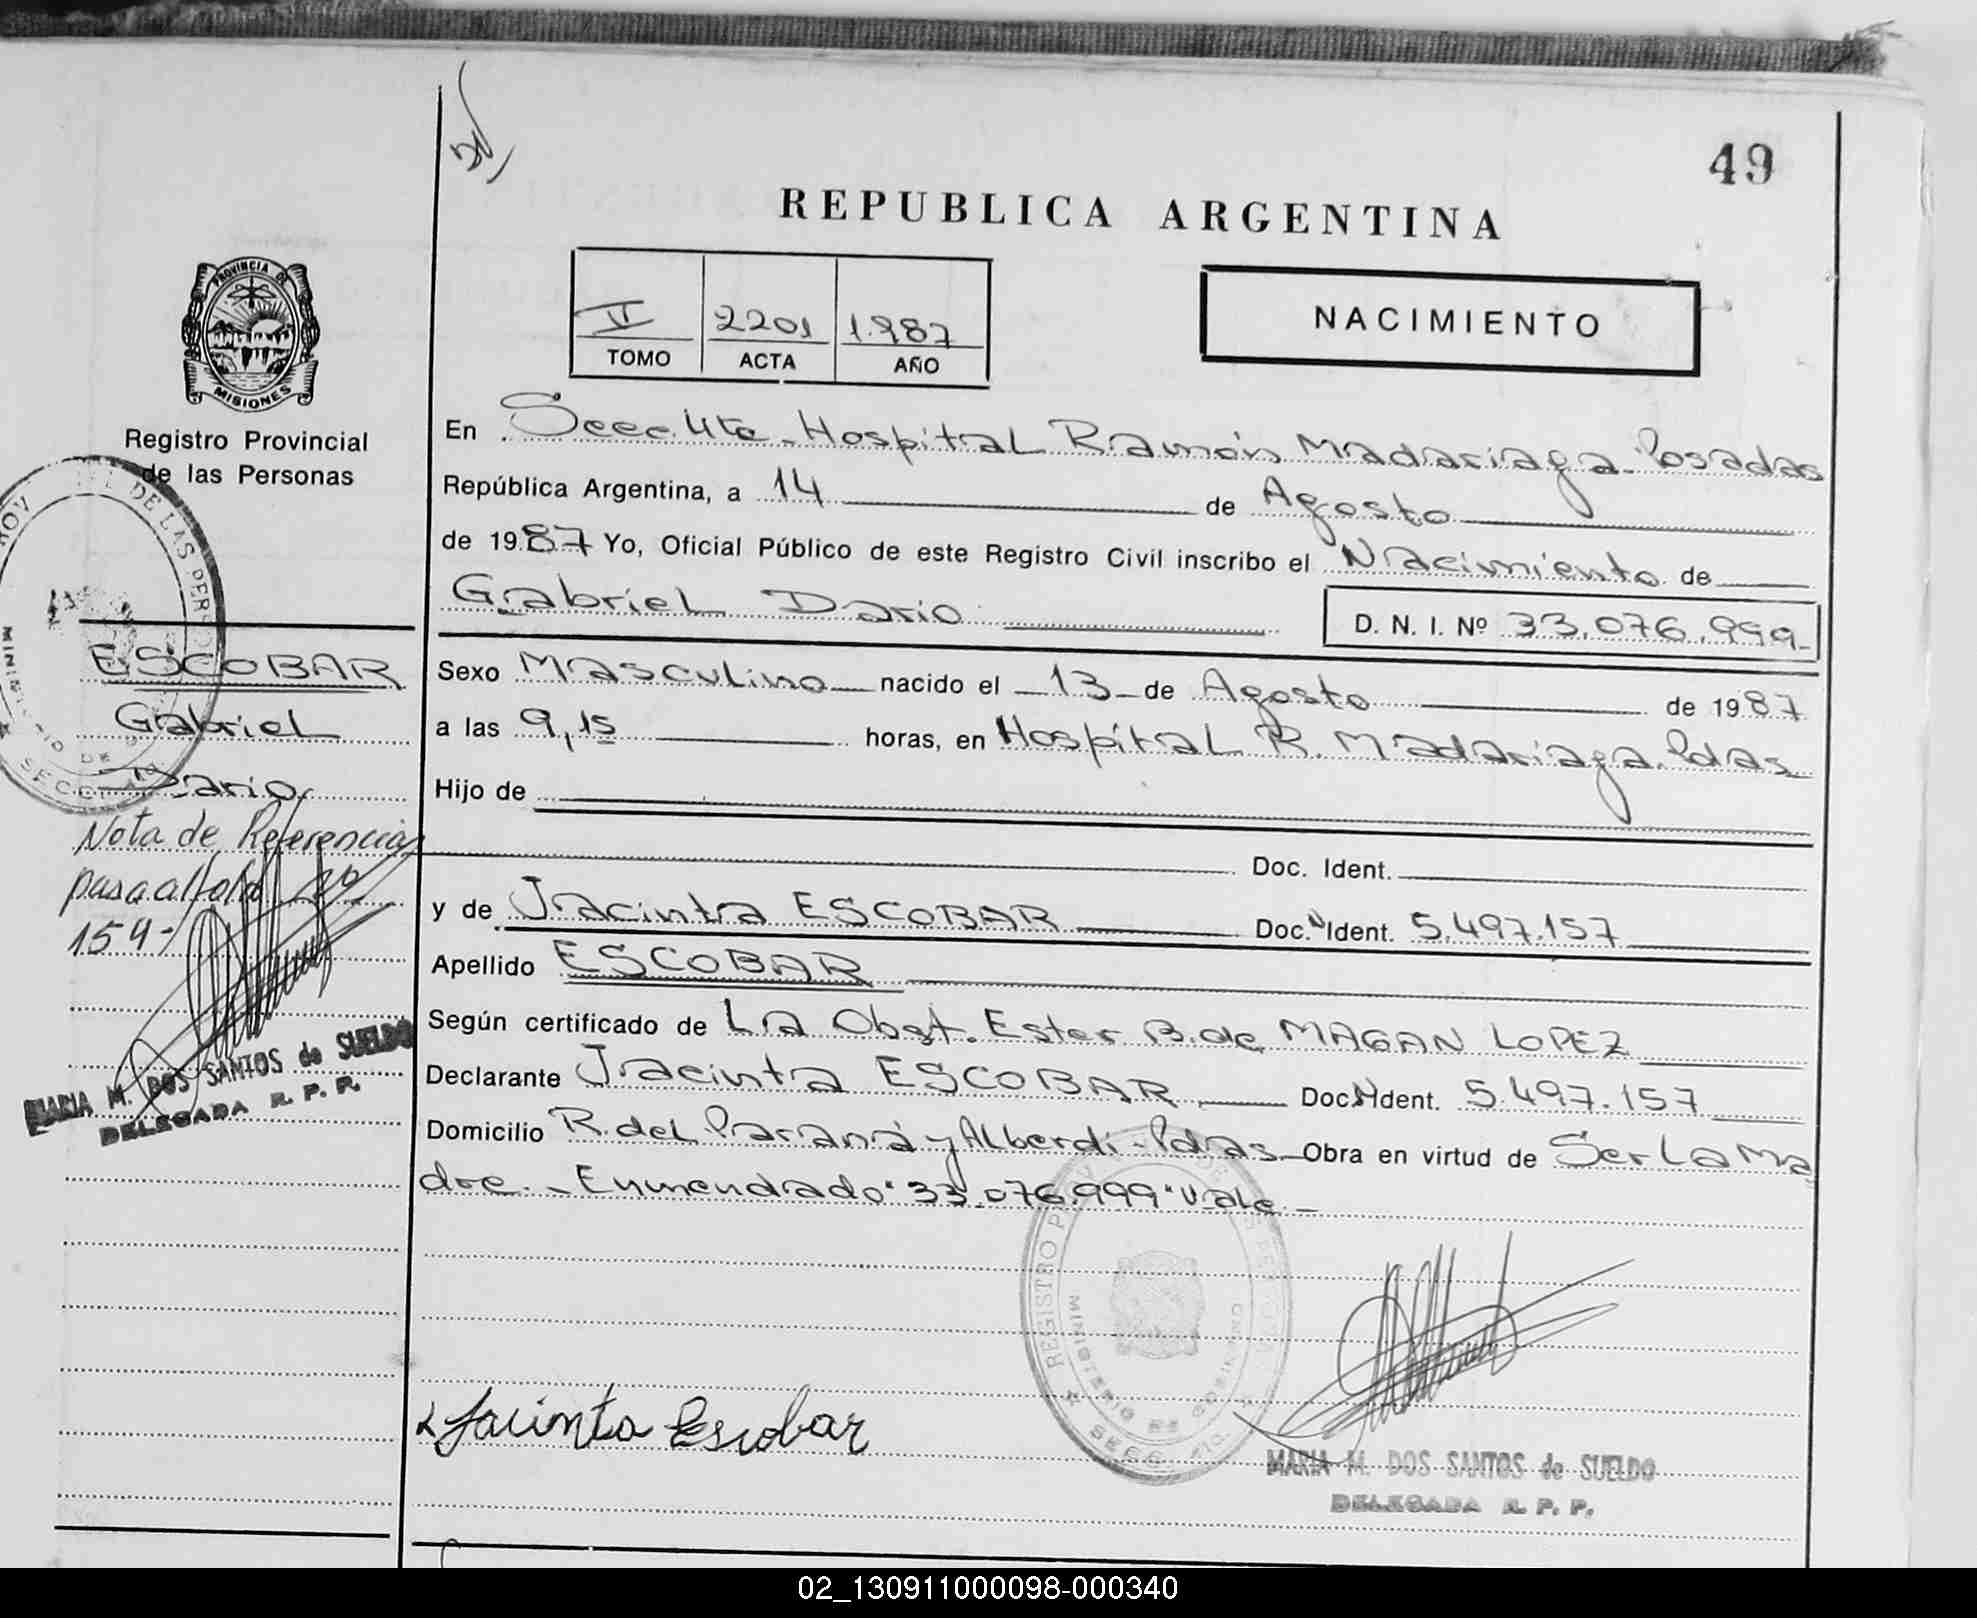 49
REPUBLICA ARGENTINA
PROVINCIA DE
MISIONES
Registro Provincial
de las Personas
V 2201 1.987
TOMO ACTA AÑO
NACIMIENTO
En Secc. 4ta - Hospital Ramón Madariaga. Posadas
República Argentina, a 14 de Agosto
de 1987 Yo, Oficial Público de este Registro Civil inscribo el Nacimiento de
Gabriel Dario D. N. I. Nº 33.076.999-
ESCOBAR
Gabriel
Dario
Nota de Referencia
pasa al folio nº
159-
MARIA M. DOS SANTOS de SUELDO
DELEGADA R. P. P.
Sexo Masculino nacido el 13 de Agosto de 1987
a las 9,15 horas, en Hospital R. Madariaga. Pdas
Hijo de
Doc. Ident.
y de Jacinta ESCOBAR Doc. Ident. 5.497.157
Apellido ESCOBAR
Según certificado de La Obst. Ester B. de MAGAN LOPEZ
Declarante Jacinta ESCOBAR Doc. Ident. 5.497.157
Domicilio R. del Paraná y Alberdi - Pdas Obra en virtud de Ser La Ma
dre. - Enmendado "33.076.999" Vale -
REGISTRO
MINISTERIO DE GOBIERNO
Jacinta Escobar
MARIA M. DOS SANTOS de SUELDO
DELEGADA R. P. P.
02_130911000098-000340